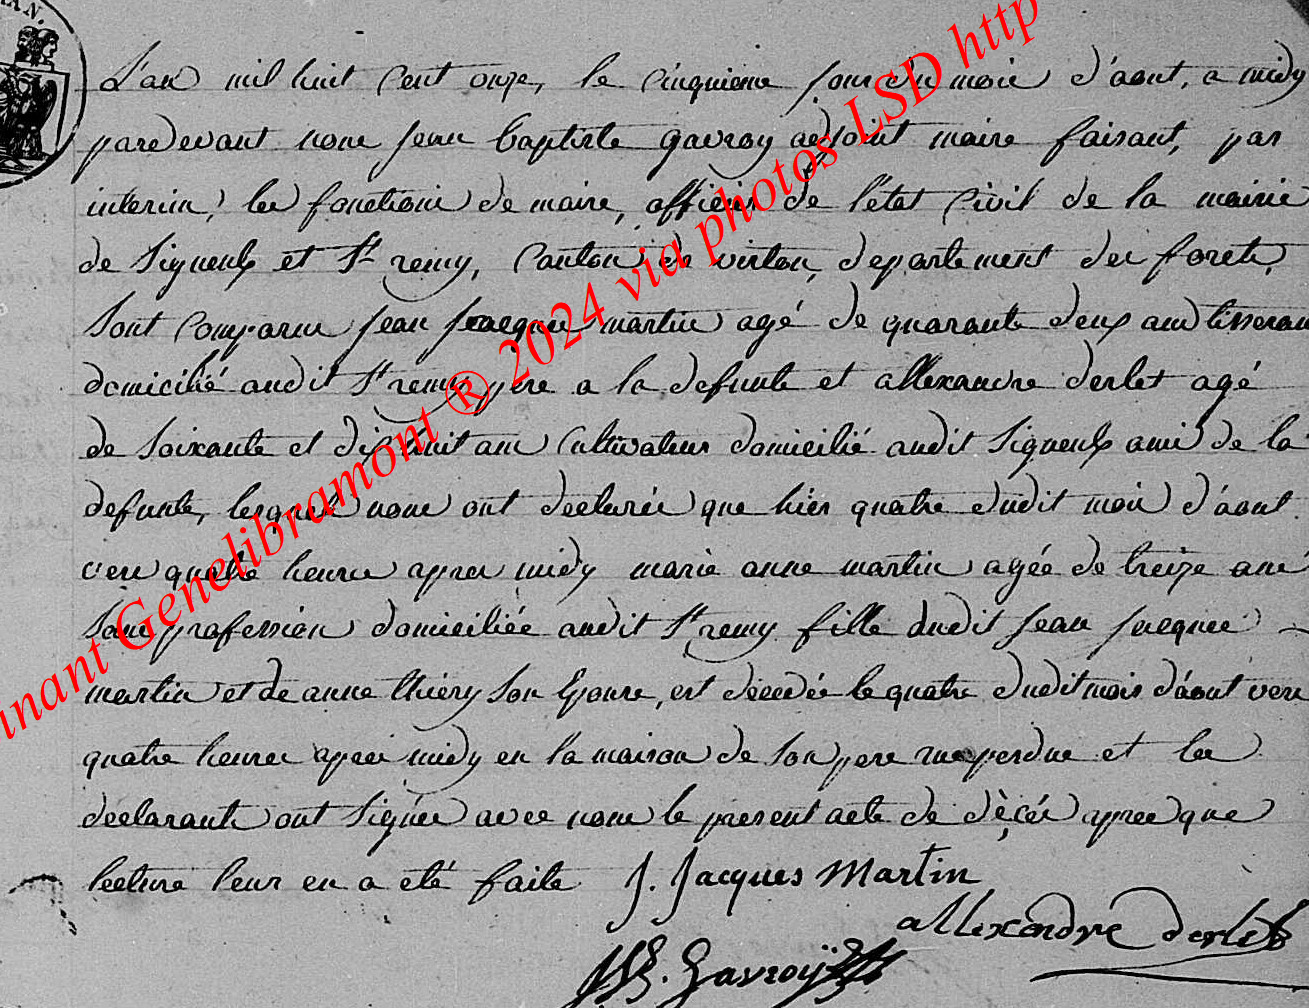 L'an mil huit cent onze, le cinquieme jour du mois d'aout, a midy
pardevant nous jean baptiste gavroy adjoint maire faisant, par
interim, les fonctions de maire, officier de l'état civil de la mairie
de Signeulx et St remy, Canton de virton, departement des forets,
sont comparus jean jacques martin agé de quarante deux ans tisseran
domicilié audit St remy pere a la defunte et allexandre derlet agé
de soixante et dix huit ans Cultivateur domicilié audit Signeulx ami de la
defunte, lesquels nous ont declarés que hier quatre dudit mois d'áout
vers quatre heures apres midy marie anne martin agée de treize ans
sans profession domiciliée audit St remy fille dudit jean jacques
martin et de anne thiery son Epouse, est decedée le quatre dudit mois d'áout vers
quatre heures apres midy en la maison de son pere rue perdue et les
declarants ont signés avec nous le present acte de dècés apres que
lecture leur en a eté faite J. Jacques Martin
allexandre derlet
JB. Gavroÿ
AN.
inant Genelibramont ® 2024 via photos LSD http